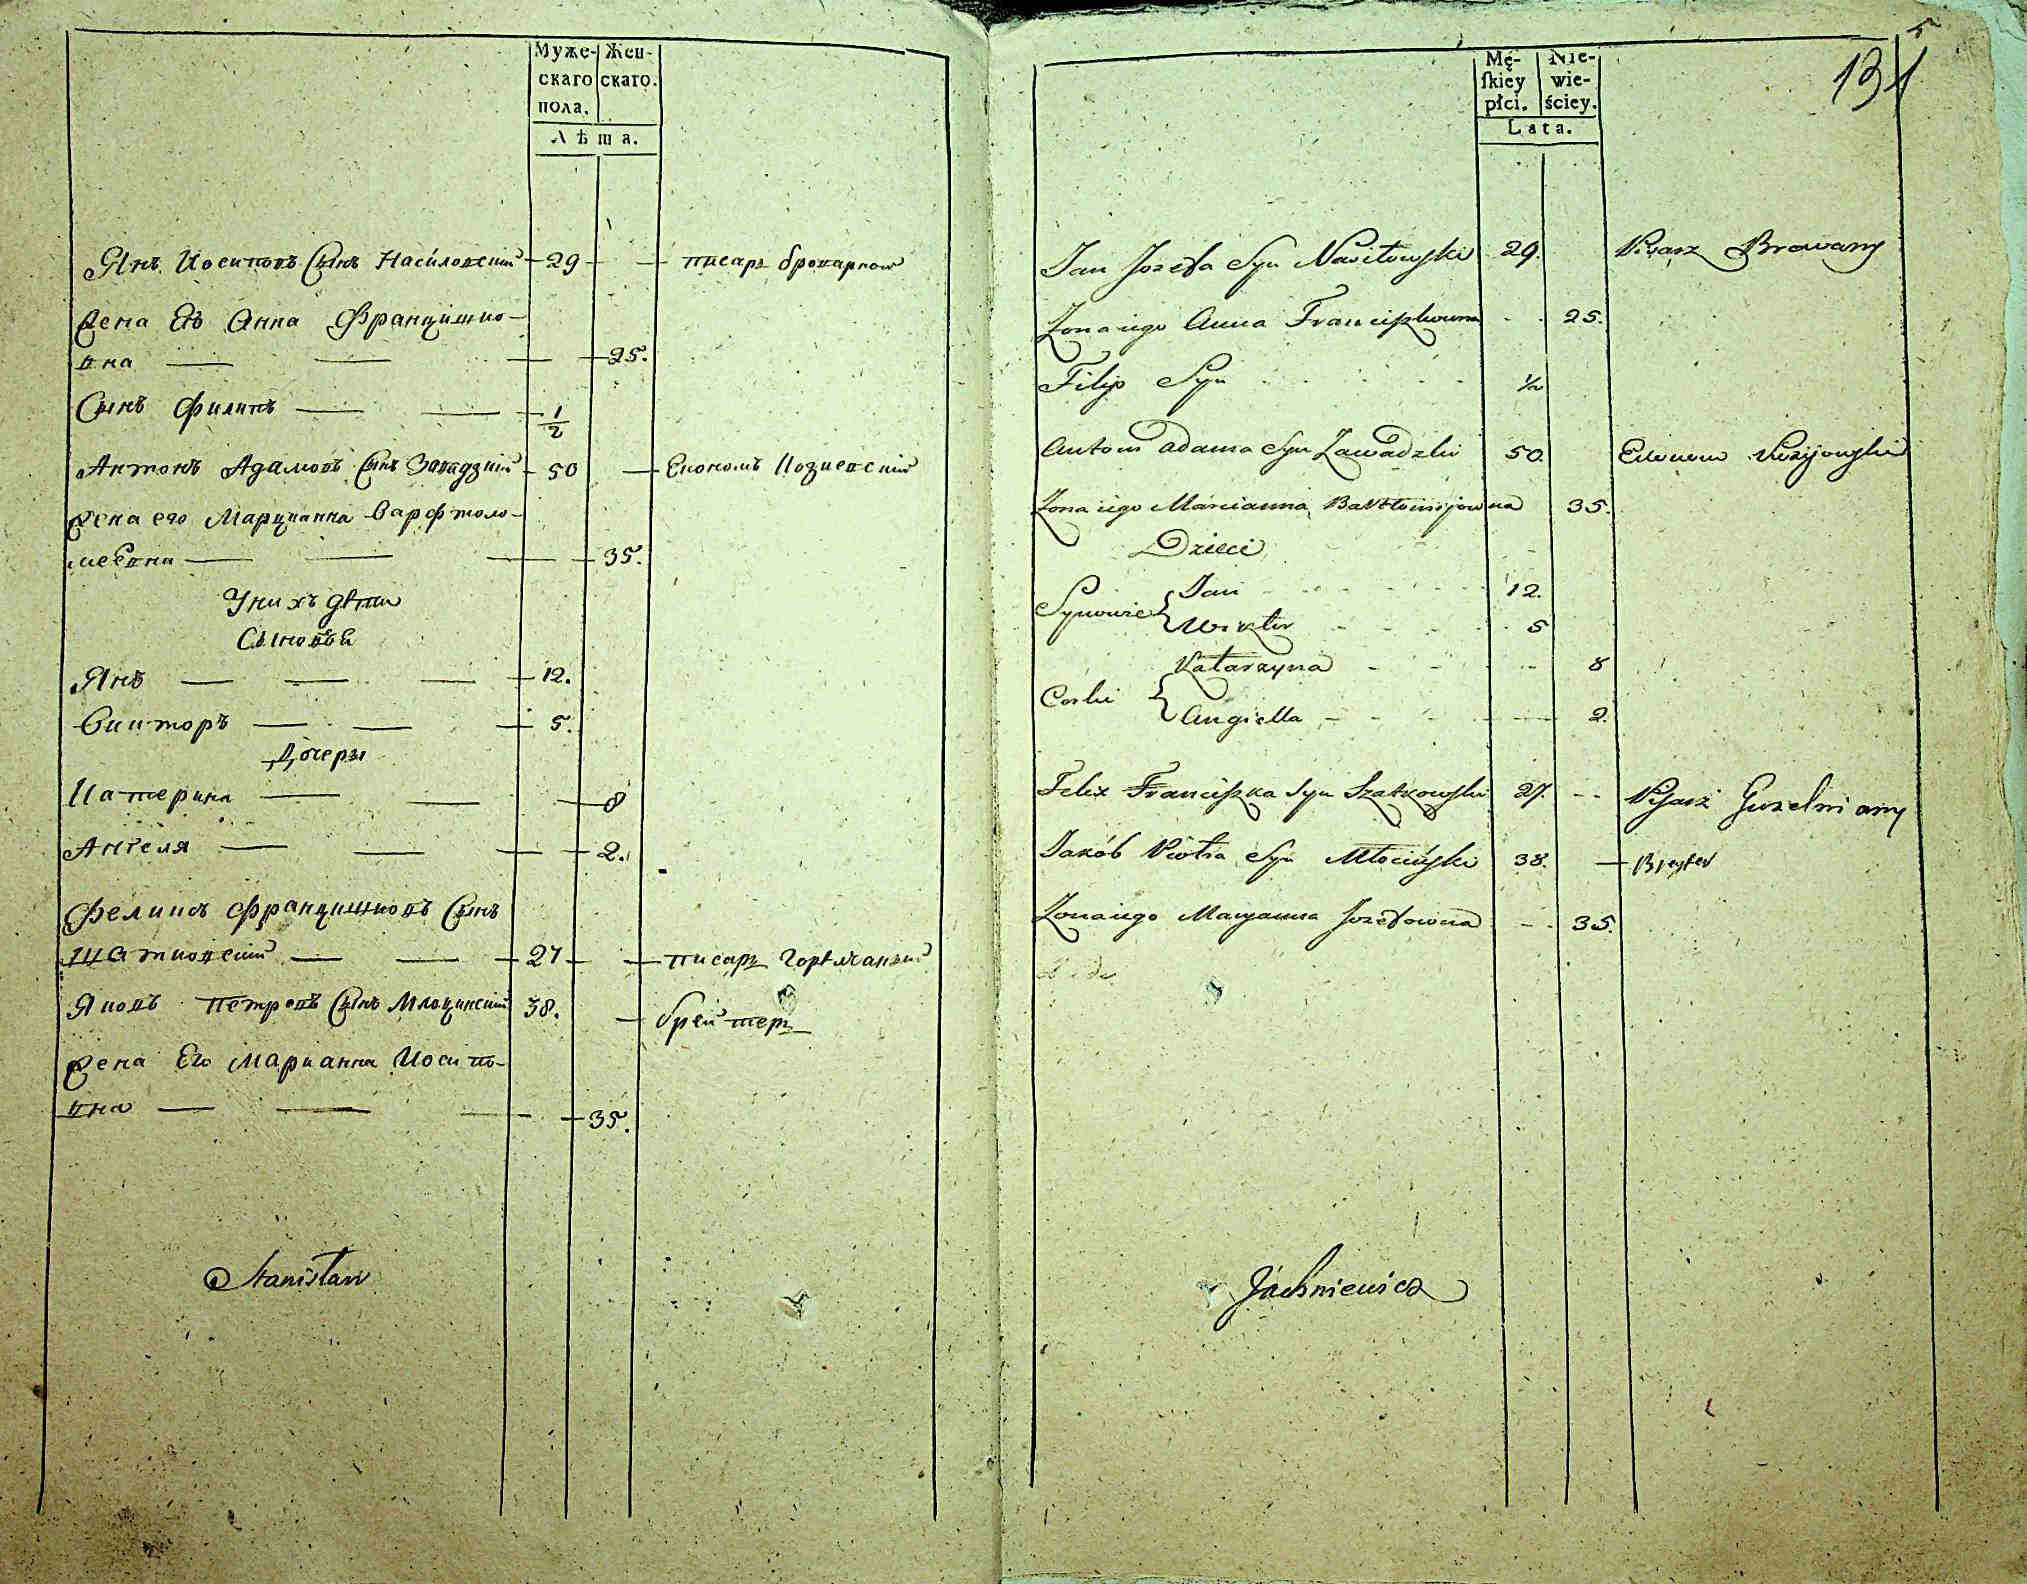 Муже-
скаго
пола.
Жен-
скаго.
Лѣта.
Янъ Иосиповъ Сынъ Насиловский 29 писарь броварной
Жена Ево Анна Францишко-
вна 25.
Сынъ Филипъ 1/2
Антонъ Адамовъ Сынъ Завадзкий 50 Економъ
Жена его Марцианна Варфтоло-
меевна 35.
У нихъ дѣти
Сыновья
Янъ 12.
Викторъ 5.
Дочеры
Катерина 8
Ангеля 2.
Феликсъ Францишковъ Сынъ
Шатковский 27 писарь Горѣлчаный
Яковъ Петровъ Сынъ Млоцинский 38. брейтеръ
Жена Его Марианна Иосипо-
вна 35.
Stanisław
5
131
Mę-
ſkiey
płci.
Nie-
wie-
ściey.
Lata.
Jan Jozefa Syn Nasiłowski 29. Pisarz Browarny
Zona iego Anna Franciszkowna 25.
Filip Syn 1/2
Antoni Adama Syn Zawadzki 50. Ekonom
Zona iego Marcianna Bartłomiejowna 35.
Dzieci
Synowie { Jan 12.
Wiktor 5
Corki { Katarzyna 8
Angiella 2.
Felix Franciszka Syn Szatkowski 27. Pisarz Gorzelniany
Jakób Piotra Syn Młociński 38. Breyter
Zona iego Maryanna Jozefowna 35.
Jachniewicz